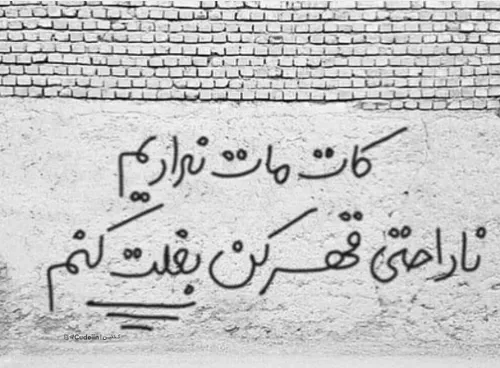 کات مات نداریم
ناراحتی قهر کن بغلت کنم
@Cudeiin